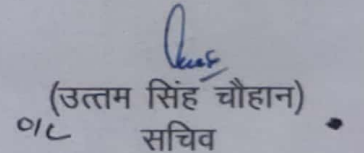 (उत्तम सिंह चौहान)
O/C सचिव